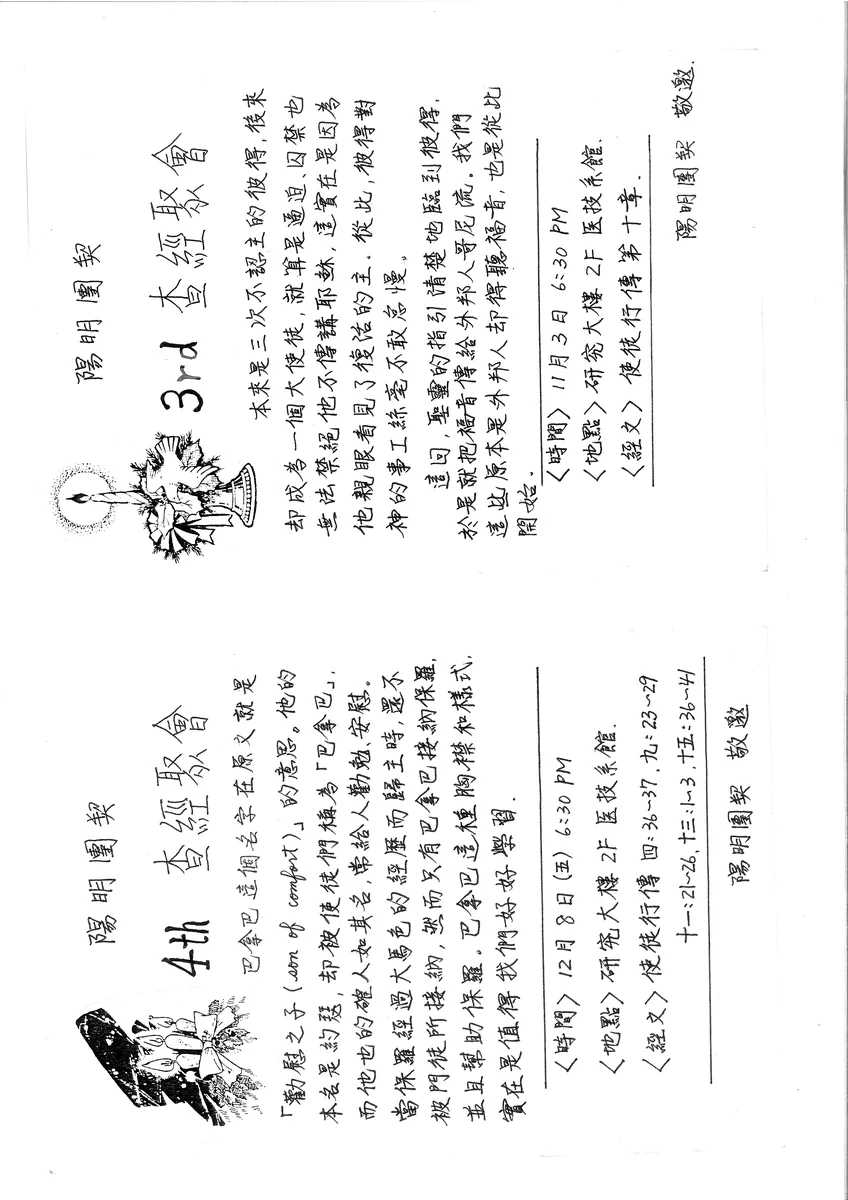 陽明團契
3rd 查經聚會
本來是三次不認主的彼得，後來
却成為一個大使徒，就算是逼迫、囚禁也
無法禁絕他不傳講耶穌，這實在是因為
他親眼看見了復活的主．從此，彼得對
神的事工絲毫不敢怠慢。
這回，聖靈的指引清楚地臨到彼得，
於是就把福音傳給外邦人哥尼流。我們
這些原本是外邦人却得聽福音，也是從此
開始．
〈時間〉11月3日 6:30 PM
〈地點〉研究大樓 2F 医技系館．
〈經文〉使徒行傳第十章．
陽明團契 敬邀．
陽明團契
4th 查經聚會
巴拿巴這個名字在原文就是
「勸慰之子(son of comfort)」的意思。他的
本名是約瑟，却被使徒們稱為「巴拿巴」，
而他也的確人如其名，常給人勸勉、安慰。
當保羅經過大馬色的經歷而歸主時，還不
被門徒所接納，然而只有巴拿巴接納保羅，
並且幫助保羅。巴拿巴這種胸襟和樣式，
實在是值得我們好好學習．
〈時間〉12月8日(五) 6:30 PM
〈地點〉研究大樓 2F 医技系館．
〈經文〉使徒行傳 四:36~37，九:23~29
十一:21~26，十三:1~3，十五:36~41
陽明團契 敬邀